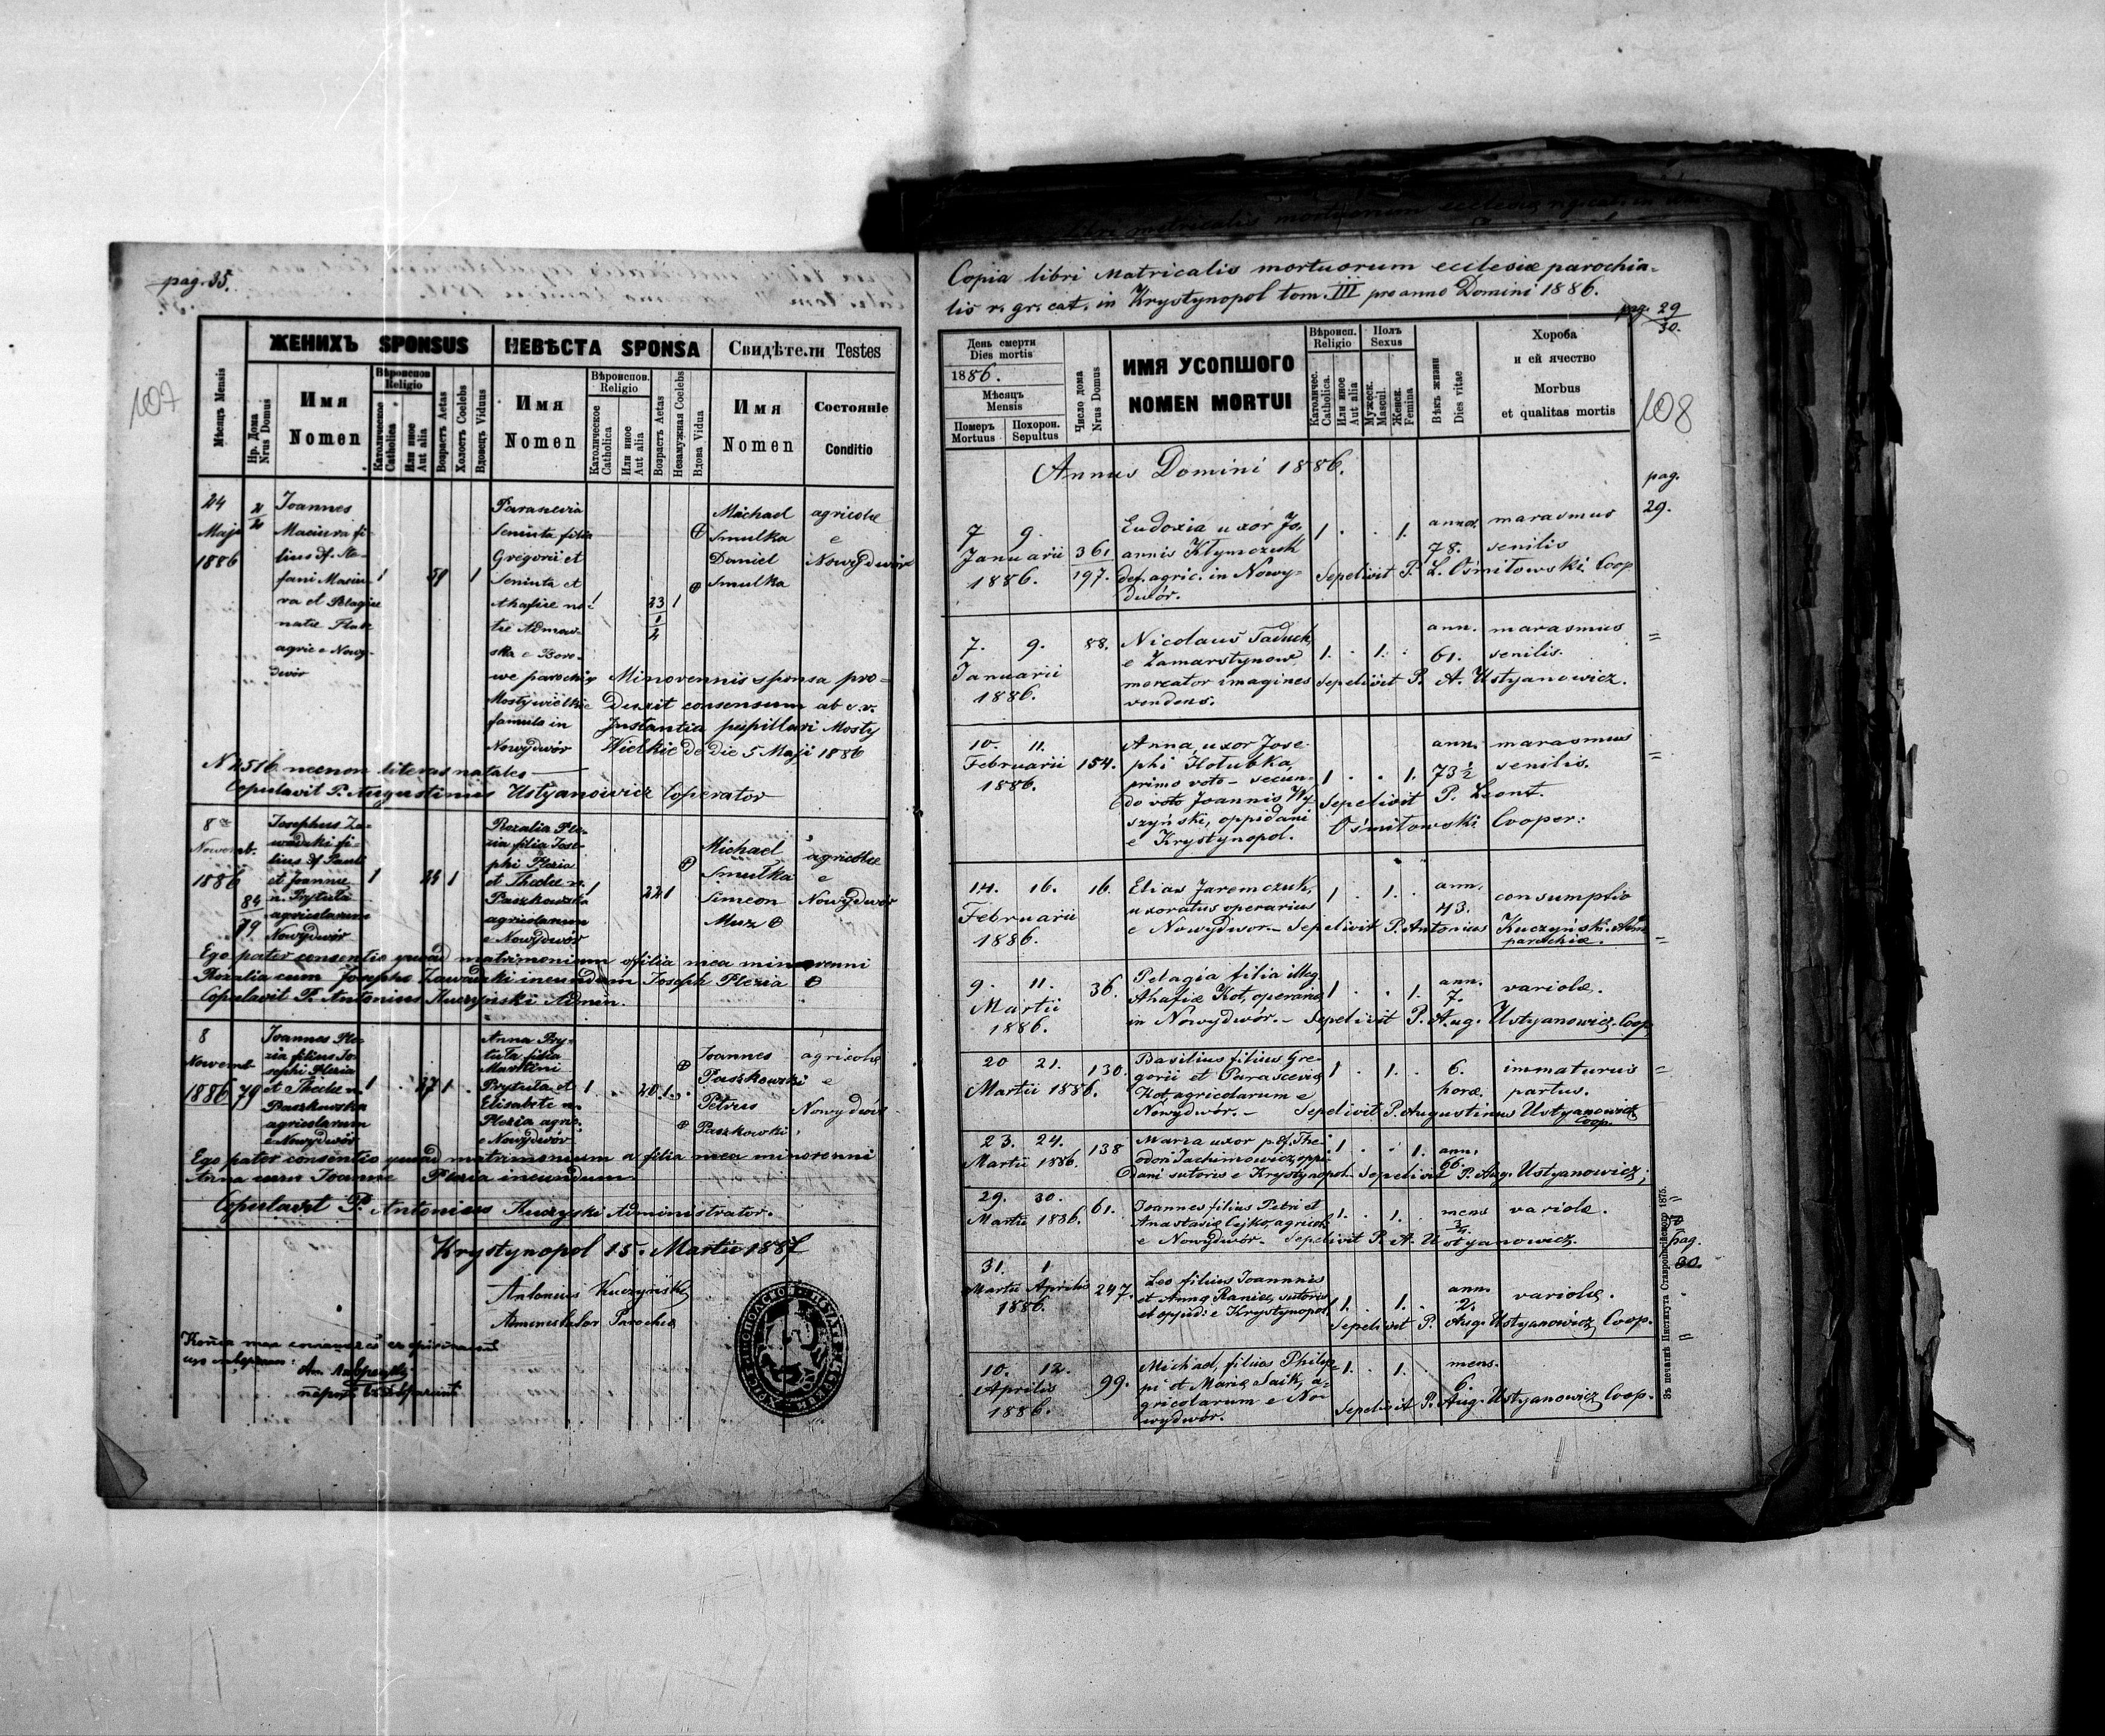 pag. 35.
107
ЖЕНИХЪ SPONSUS
НЕВѢСТА SPONSA
Свидѣтели Testes
Мѣсяцъ Mensis
Нр. Дома
Nrus Domus
Имя
Nomen
Вѣроиспов.
Religio
Католическое
Catholica
Или иное
Aut alia
Возрастъ Aetas
Холостъ Coelebs
Вдовецъ Viduus
Имя
Nomen
Вѣроиспов.
Religio
Католическое
Catholica
Или иное
Aut alia
Возрастъ Aetas
Незамужная Coelebs
Вдова Vidua
Имя
Nomen
Состояніе
Conditio
24
Maji
1886
Joannes
Maciura fi-
lius df. Ste-
fani Maciu-
ra et Pelagiae
natae
agric e Nowy-
dwór
1
59
1
Parascevia
Seniuta filia
Gregorii et
Seniuta et
Ahafiae na-
tae
ska e Boro-
we parochiae
Mosty wielkie
famula in
Nowydwór
1
23
1
2
1
Michael
Smulka
Daniel
Smulka
agricolae
e
Nowydwór
Minorennis sponsa pro-
Duxit consensum ab c.r.
Instantia pupillari Mosty
Wielkie de die 5 Maji 1886
N 2516 necnon literas natales
Copulavit P. Augustinus Ustyanowicz Coperator
8
Novemb.
1886
84
79
Josephus Za-
wadzki fi-
lius df Pauli
et Joannae
n. Prytuła
agricolarum
Nowydwór
1
1
Rozalia Ple-
zia filia Jose-
phi Plezia
et Theclae n.
Paszkowska
agricolarum
e Nowydwór
1
22 1
Michael
Smulka
Simeon
Muz
agricolae
e
Nowydwór
Ego pater consentio quoad matrimonium a filia mea minorenni
Rozalia cum Josepho Zawadzki ineundum Joseph Plezia
Copulavit P. Antonius Kuczyński Admin.
8
Novemb
1886
79
Joannes Ple-
zia filius Jo-
sephi Plezia
et Theclae n.
Paszkowska
agricolarum
e Nowydwór
1
27 1
Anna Pry-
tuła filia
Martini
Prytuła et
Elisabete n.
Plezia agric.
e Nowydwór
1
20 1
Joannes
Paszkowski
Petrus
Paszkowski
agricolae
e
Nowydwór
Ego pater consentio quoad matrimonium a filia mea minorenni
Anna cum Joanne Plezia ineundum
Copulavit P. Antonius Kuczyski Administrator.
Krystynopol 15. Martii 1887
Antonius Kuczyński
Administrator Parochiae
Copia libri Matricalis mortuorum ecclesiae parochia-
lis r. gr. cat. in Krystynopol tom. III pro anno Domini 1886.
pag. 29
30.
108
День смерти
Dies mortis
1886.
Мѣсяцъ
Mensis
Померъ
Mortuus
Похорон.
Sepultus
Число дома
Nrus Domus
ИМЯ УСОПШОГО
NOMEN MORTUI
Вѣроисп.
Religio
Католичес.
Catholica.
Или иное
Aut alia
Полъ
Sexus
Мужеск.
Mascul.
Женск.
Femina
Вѣкъ жизни
Dies vitae
Хороба
и ей ячество
Morbus
et qualitas mortis
Annus Domini 1886.
pag.
29.
7 9.
Januarii
1886.
361
197.
Eudoxia uxor Jo-
annis Kłymczuk
def. agric. in Nowy-
dwór.
1. . . 1.
annor.
78.
marasmus
senilis
Sepelivit P. L. Ośmiłowski Coop
7. 9.
Januarii
1886.
88.
Nicolaus Taduch
e Zamarstynow
mercator imagines
vendens.
1. . 1. .
ann.
61.
marasmus
senilis.
Sepelivit P. A. Ustyanowicz.
10. 11.
Februarii
1886.
154.
Anna, uxor Jose-
phi Hołubka,
primo voto – secun-
do voto Joannis Wy-
szyński, oppidani
e Krystynopol.
1 . . 1.
ann.
73 1/2
marasmus
senilis.
Sepelivit P. Leont.
Ośmiłowski Cooper:
14. 16.
Februarii
1886.
16.
Elias Jaremczuk,
uxoratus operarius
e Nowydwor. – Sepelivit P. Antonius Kuczyński Adm
parochiae.
1 . 1. .
ann.
43.
consumptio
9. 11.
Martii
1886.
36.
Pelagia filia illeg.
Ahafiae Kot, operans
in Nowydwór. – Sepelivit P. Aug. Ustyanowicz Coop
1 . . 1.
ann.
7.
variolae.
20 21.
Martii 1886.
130.
Basilius filius Gre-
gorii et Parasceviae
Kot, agricolarum e
Nowydwór. – Sepelivit P. Augustinus Ustyanowicz
Coop.
1 . 1. .
6.
horae
immaturus
partus.
23. 24.
Martii 1886.
138
Maria uxor p. df. The-
odori Jachimowicz, oppi-
dani sutoris e Krystynopol. Sepelivit P. Aug. Ustyanowicz;
1 . . 1.
ann.
66.
29. 30.
Martii 1886.
61.
Joannes filius Petri et
Anastasiae Cejko, agricol.
e Nowydwór. – Sepelivit P. A. Ustyanowicz.
1. . 1. .
mens
3/4
variolae.
pag.
30.
31. 1
Martii Aprilis
1886.
247.
Leo filius Joannnis
et Annae Rania, sutoris
et oppid: e Krystynopol
1. . 1. .
ann.
2.
variolae.
Sepelivit P. Aug. Ustyanowicz Coop.
10. 12.
Aprilis
1886.
99.
Michael, filius Philip-
pi et Mariae Saik, a-
gricolarum e No-
wydwór.
1. . 1.
mens.
6.
Sepelivit P. Aug. Ustyanowicz Coop.
Зъ печатнѣ Института Ставропигійского 1875.